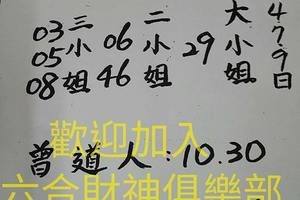 479日
大小姐
29
二小姐
06
46
三小姐
03
05
08
歡迎加入
曾道人:10.30
六合財神俱樂部